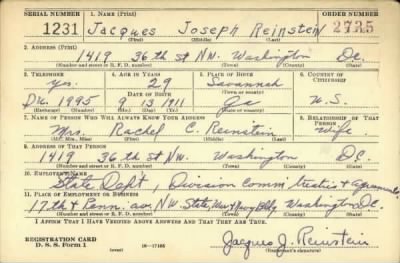 SERIAL NUMBER 1. NAME (Print) ORDER NUMBER
1231 Jacques Joseph Reinstein 2735
(First) (Middle) (Last)
2. ADDRESS (Print)
1419 36th St NW. Washington D.C.
(Number and street or R. F. D. number) (Town) (County) (State)
3. TELEPHONE 4. AGE IN YEARS 5. PLACE OF BIRTH 6. COUNTRY OF CITIZENSHIP
Yes. 29 Savannah
DATE OF BIRTH (Town or county)
Du. 1995 9 13 1911 Ga U.S.
(Mo.) (Day) (Yr.) (State or country)
7. NAME OF PERSON WHO WILL ALWAYS KNOW YOUR ADDRESS 8. RELATIONSHIP OF THAT PERSON
Mrs. Rachel C. Reinstein Wife
(Mr., Mrs., Miss) (First) (Middle) (Last)
9. ADDRESS OF THAT PERSON
1419 36th St NW. Washington D.C.
(Number and street or R. F. D. number) (Town) (County) (State)
10. EMPLOYER'S NAME
State Dept, Division Comm treaties & agreements
11. PLACE OF EMPLOYMENT OR BUSINESS
17th & Penn. av. NW. State, War & Navy Bldg Washington D.C.
(Number and street or R. F. D. number) (Town) (County) (State)
I AFFIRM THAT I HAVE VERIFIED ABOVE ANSWERS AND THAT THEY ARE TRUE.
REGISTRATION CARD
D. S. S. Form 1 (over) 16—17105
Jacques J. Reinstein